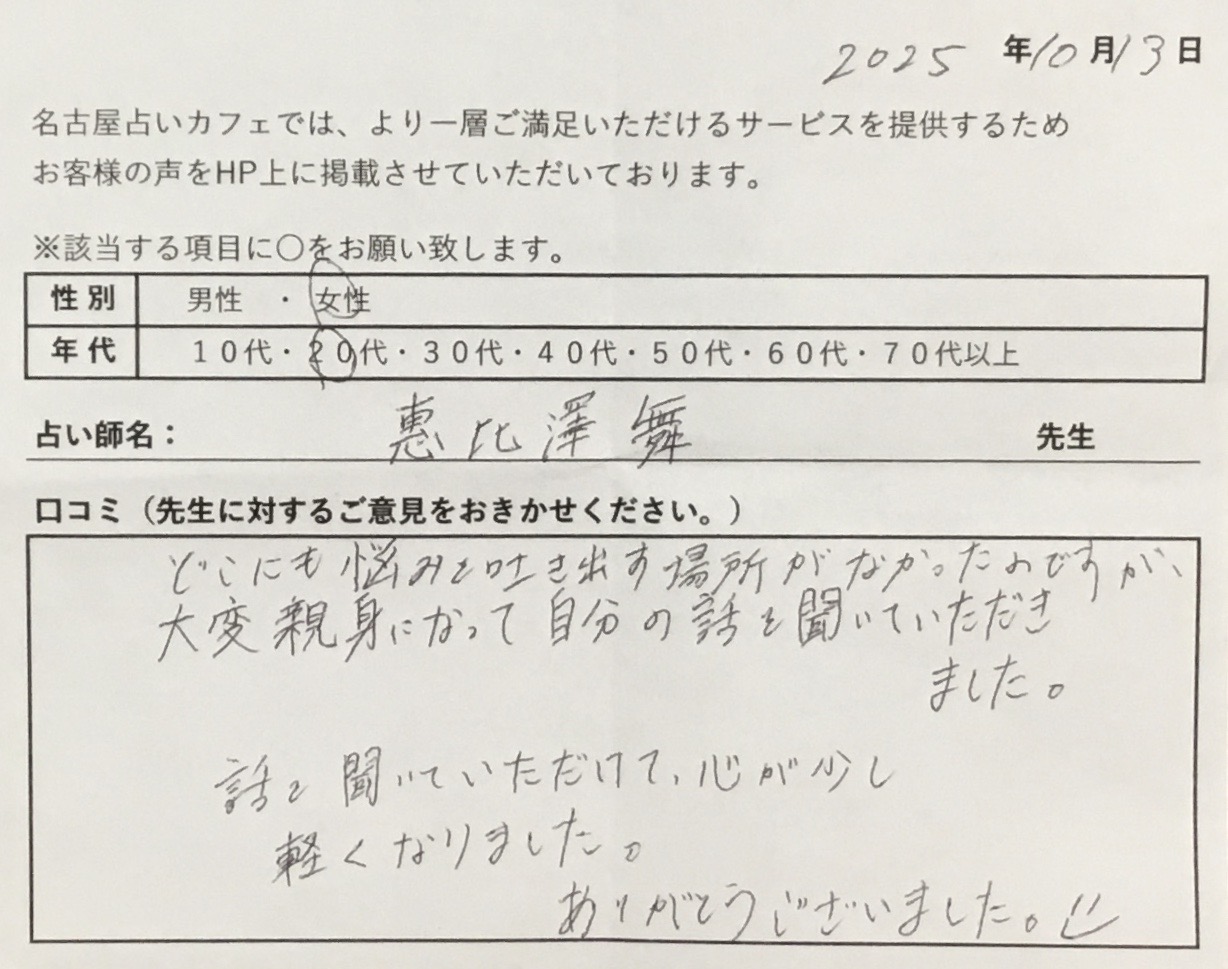 2025年10月13日
名古屋占いカフェでは、より一層ご満足いただけるサービスを提供するため
お客様の声をHP上に掲載させていただいております。
※該当する項目に〇をお願い致します。
性別 男性 ・ 女性
年代 10代・20代・30代・40代・50代・60代・70代以上
占い師名： 惠比澤 舞 先生
口コミ（先生に対するご意見をおきかせください。）
どこにも悩みを吐き出す場所がなかったのですが、
大変親身になって自分の話を聞いていただき
ました。
話を聞いていただけて、心が少し
軽くなりました。
ありがとうございました。